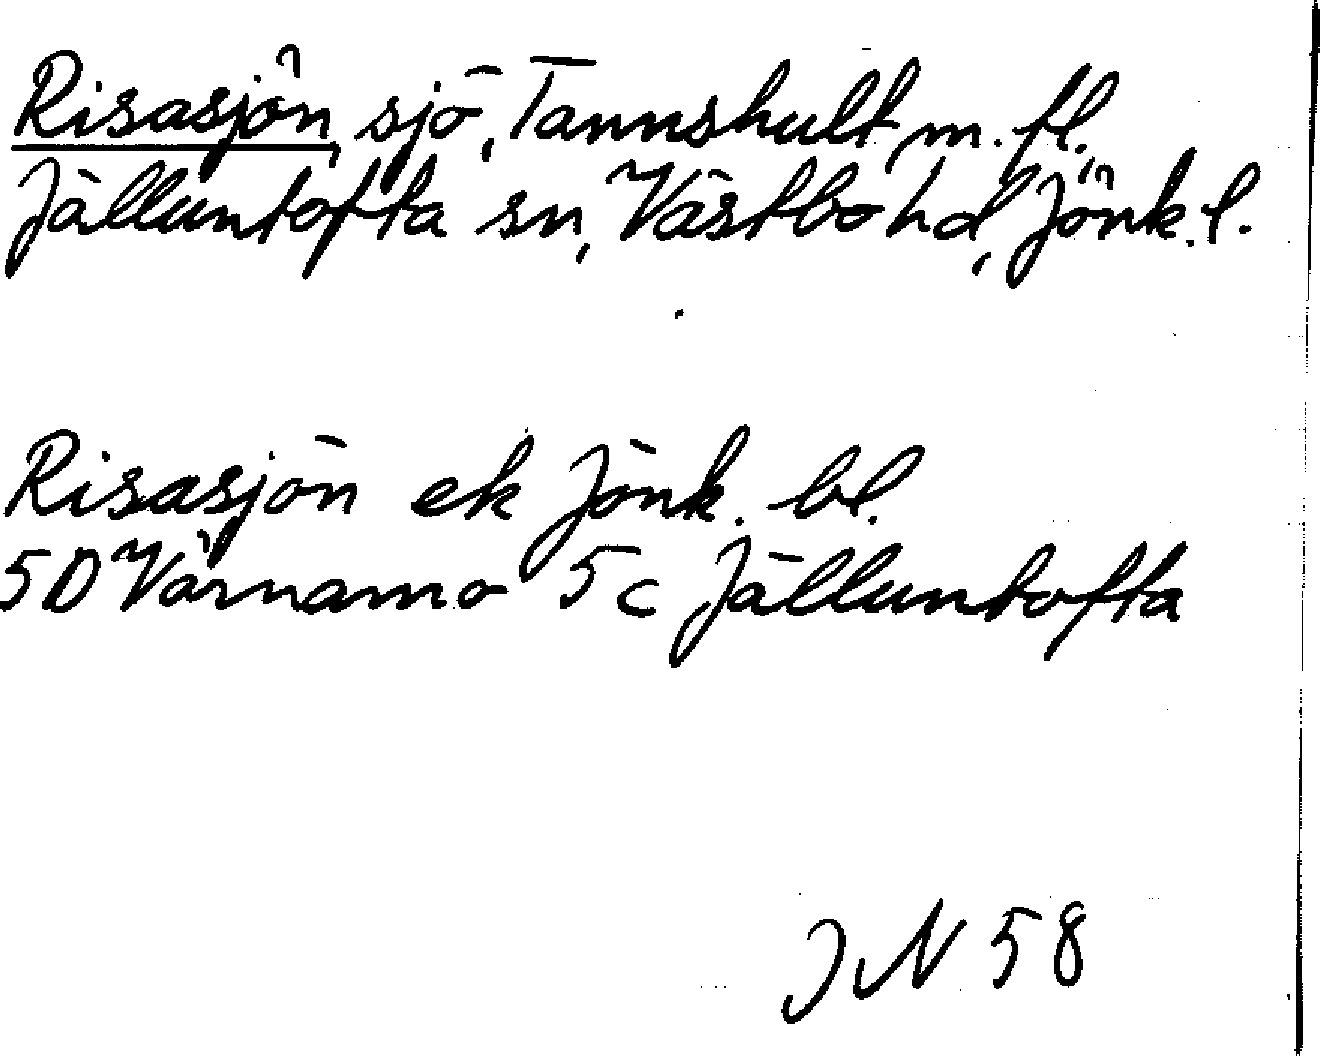 Risasjön, sjö, Tannshult, m. fl.,
Jälluntofta sn, Västbo hd, Jönk. l.
Risasjön ek Jönk. bl.
5D Värnamo 5c Jälluntofta
JN 58